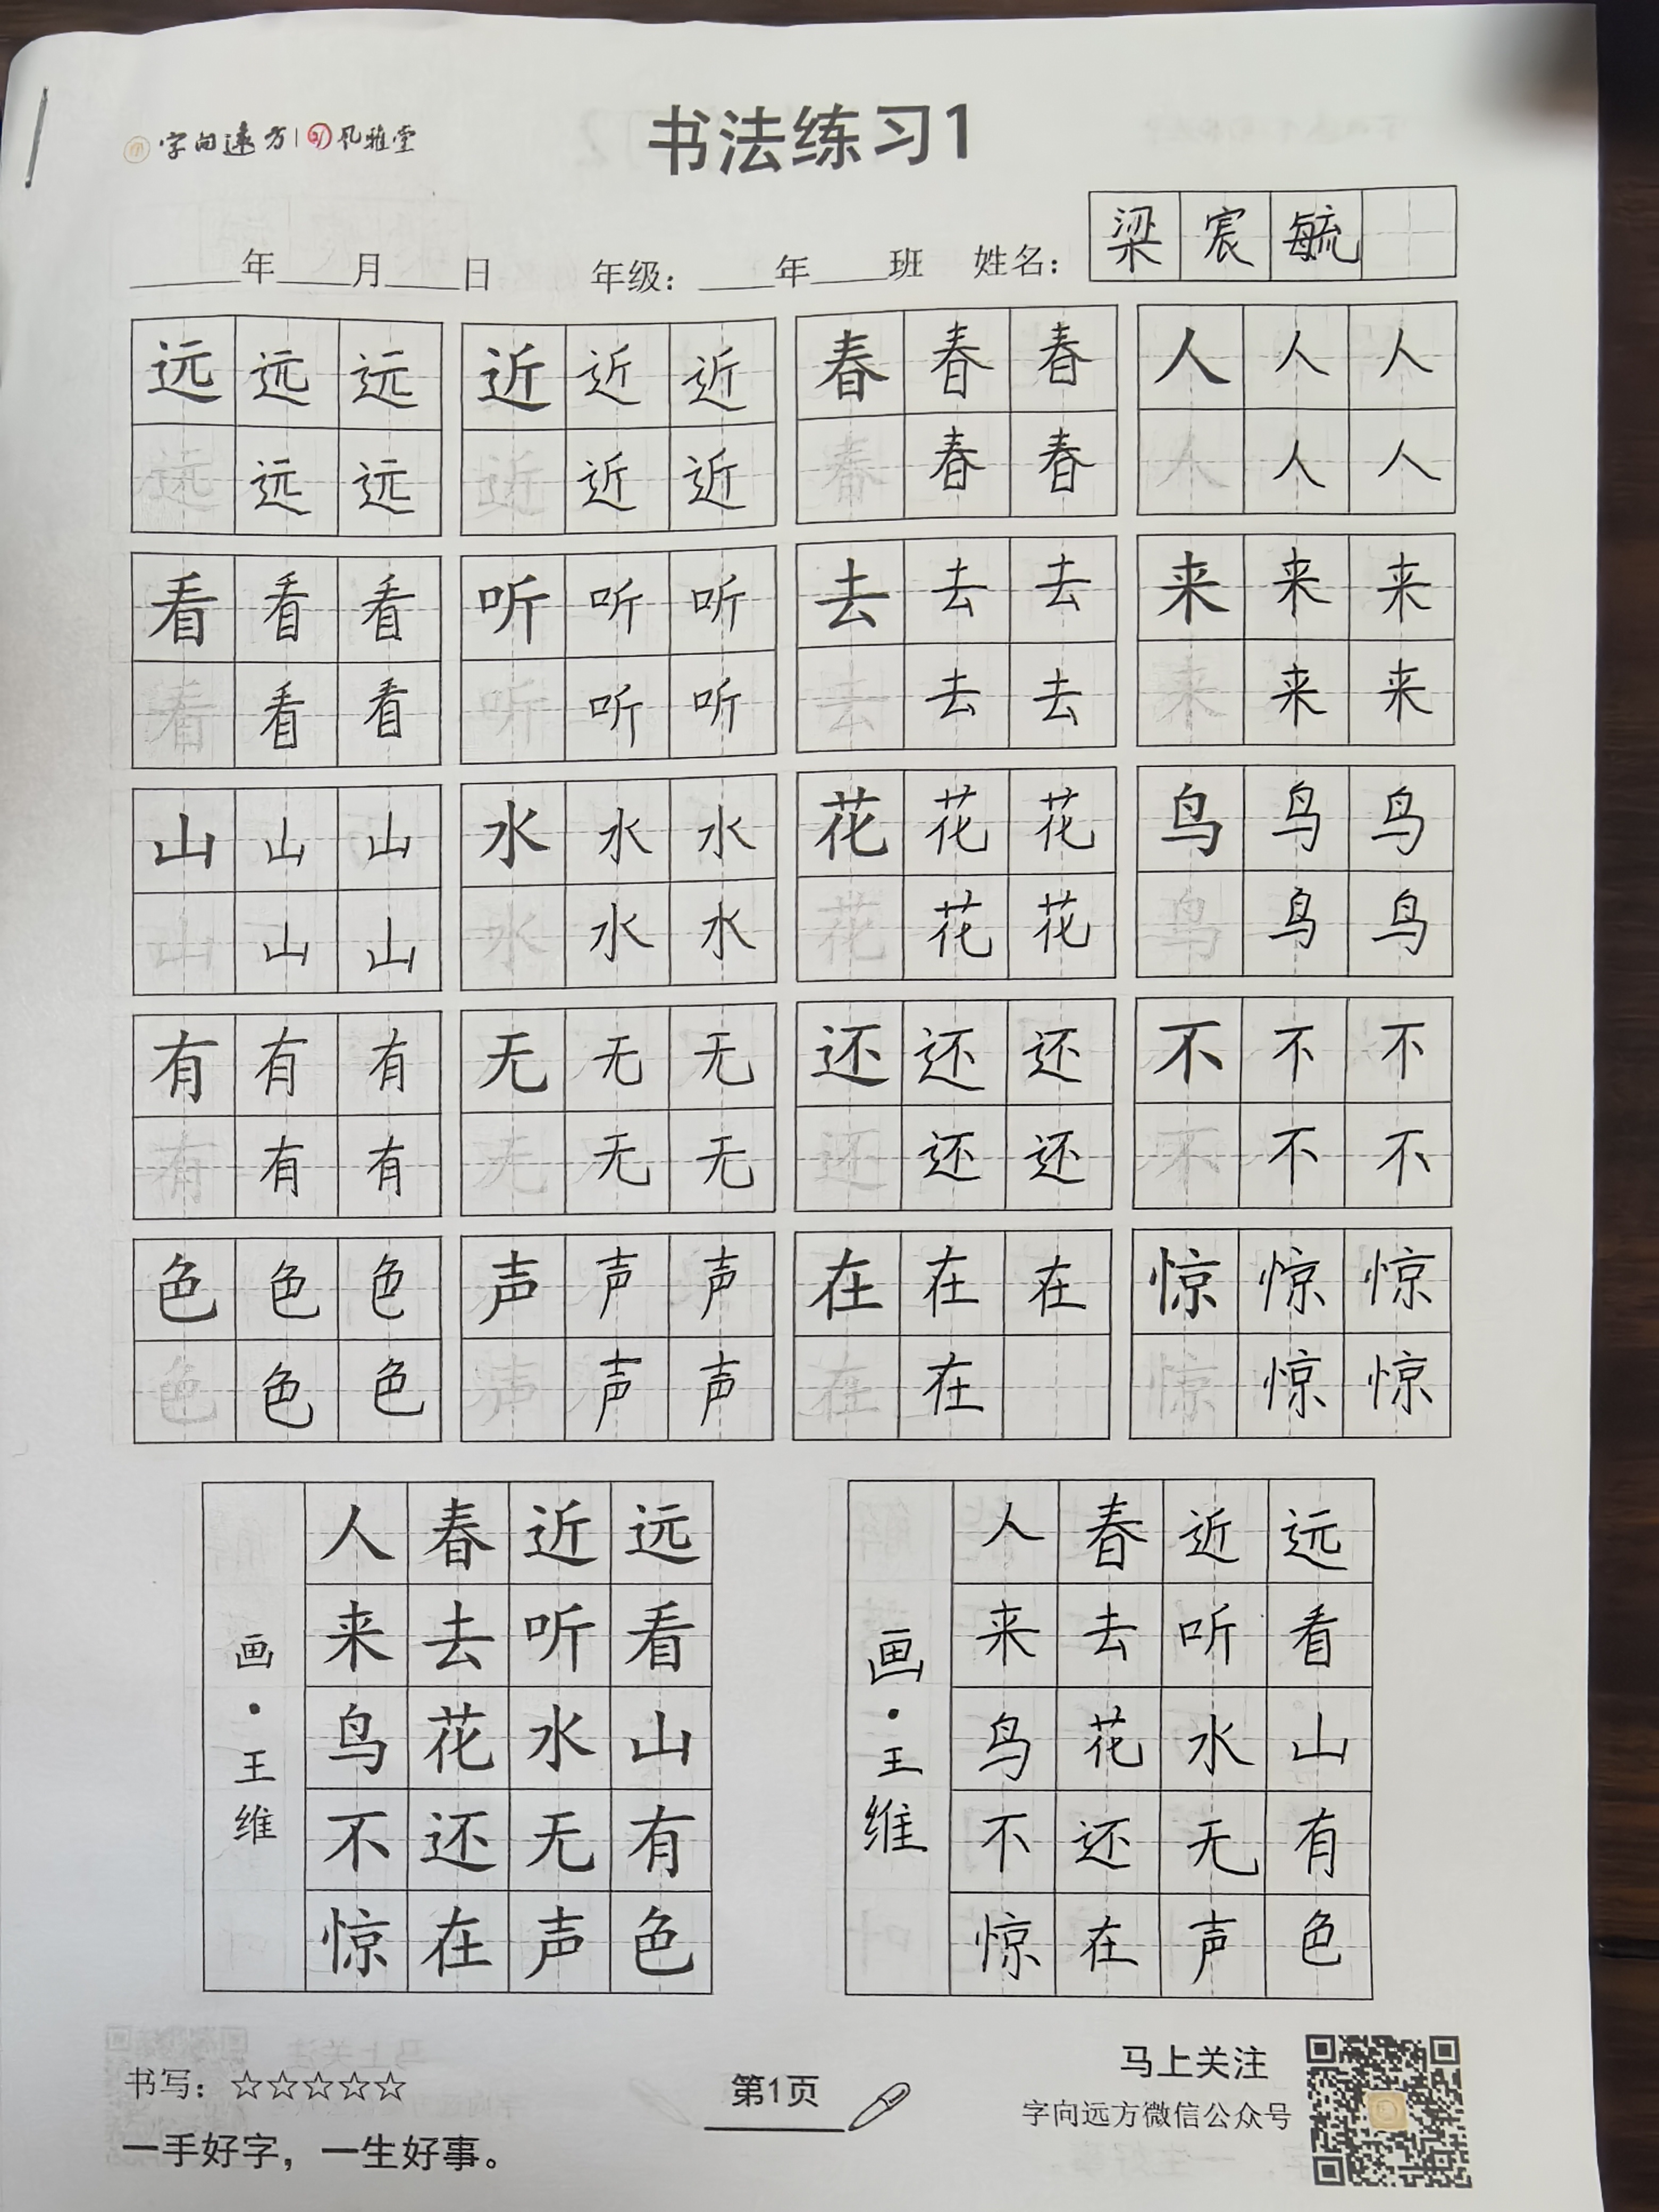 字向远方 | 风雅堂
书法练习1
____年____月____日 年级：____年____班 姓名：梁宸毓
远远远 近近近 春春春 人人人
远远远 近近近 春春春 人人人
看看看 听听听 去去去 来来来
看看看 听听听 去去去 来来来
山山山 水水水 花花花 鸟鸟鸟
山山山 水水水 花花花 鸟鸟鸟
有有有 无无无 还还还 不不不
有有有 无无无 还还还 不不不
色色色 声声声 在在在 惊惊惊
色色色 声声声 在在 惊惊惊
远看山有色
近听水无声
春去花还在
人来鸟不惊
画·王维
远看山有色
近听水无声
春去花还在
人来鸟不惊
画·王维
书写：☆☆☆☆☆
一手好字，一生好事。
第1页
马上关注
字向远方微信公众号